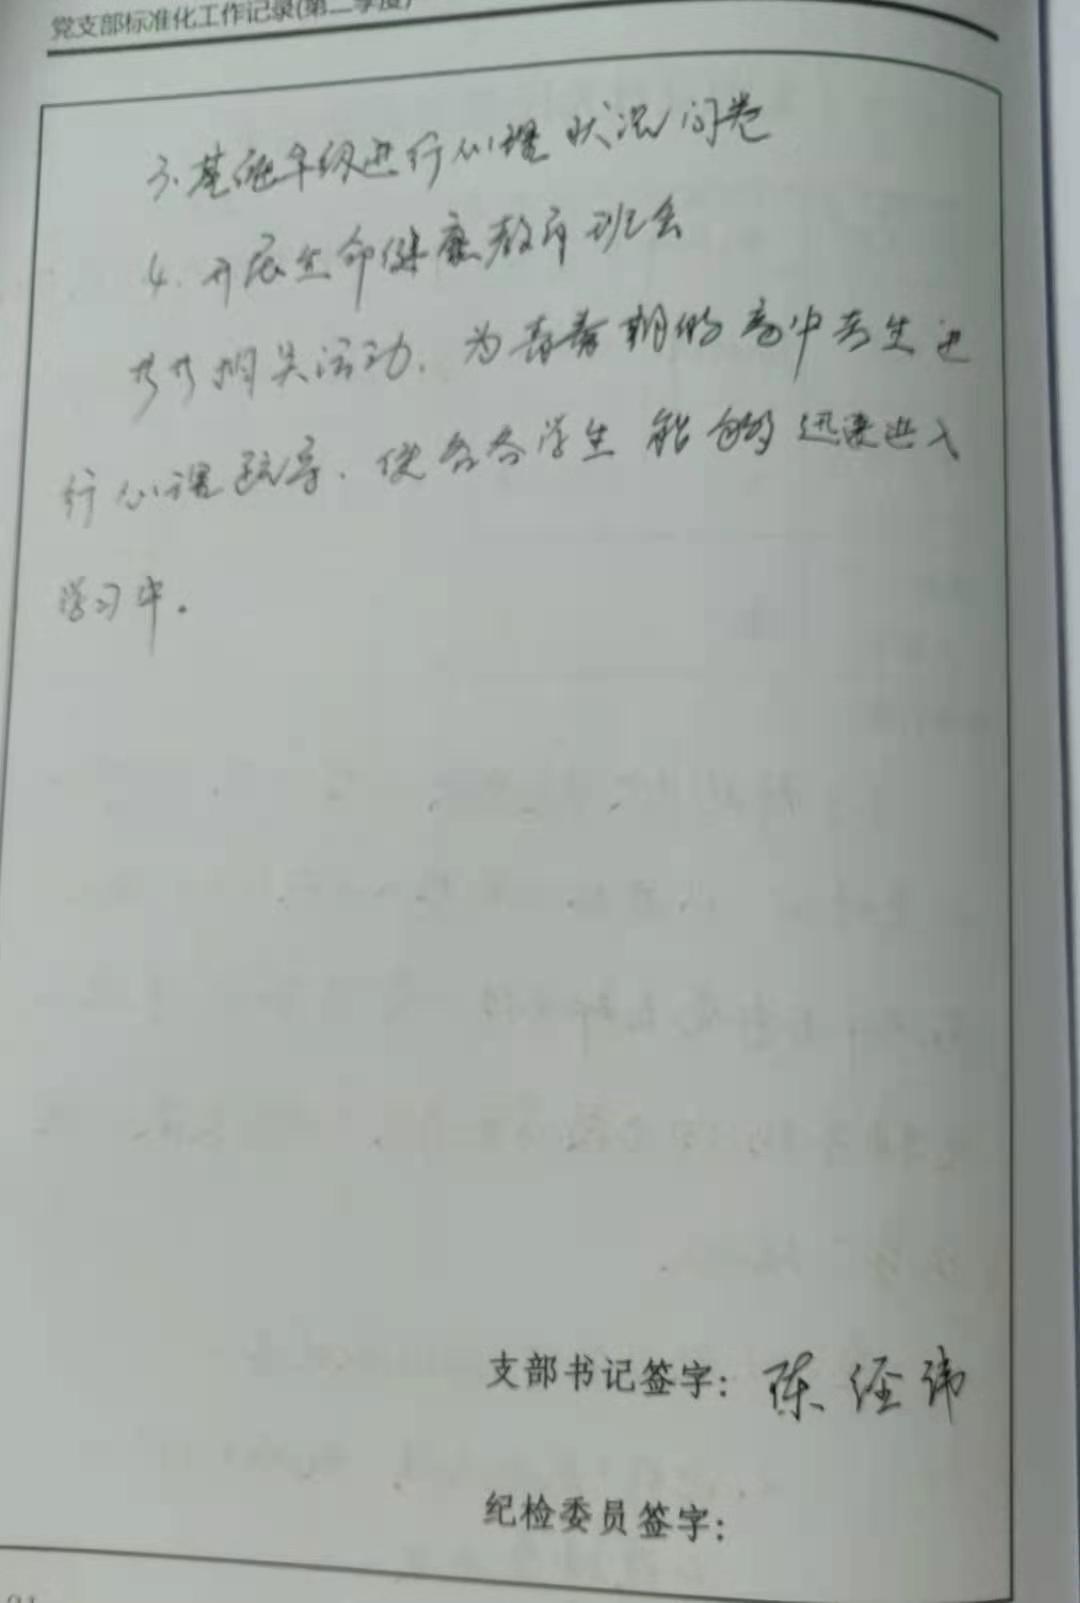 党支部标准化工作记录(第二季度)
3.基础年级进行心理状况问卷
4.开展生命健康教育班会
相关活动，为青春期的高中考生进
行心理疏导，使各各学生能够迅速进入
学习中。
支部书记签字：陈经纬
纪检委员签字：